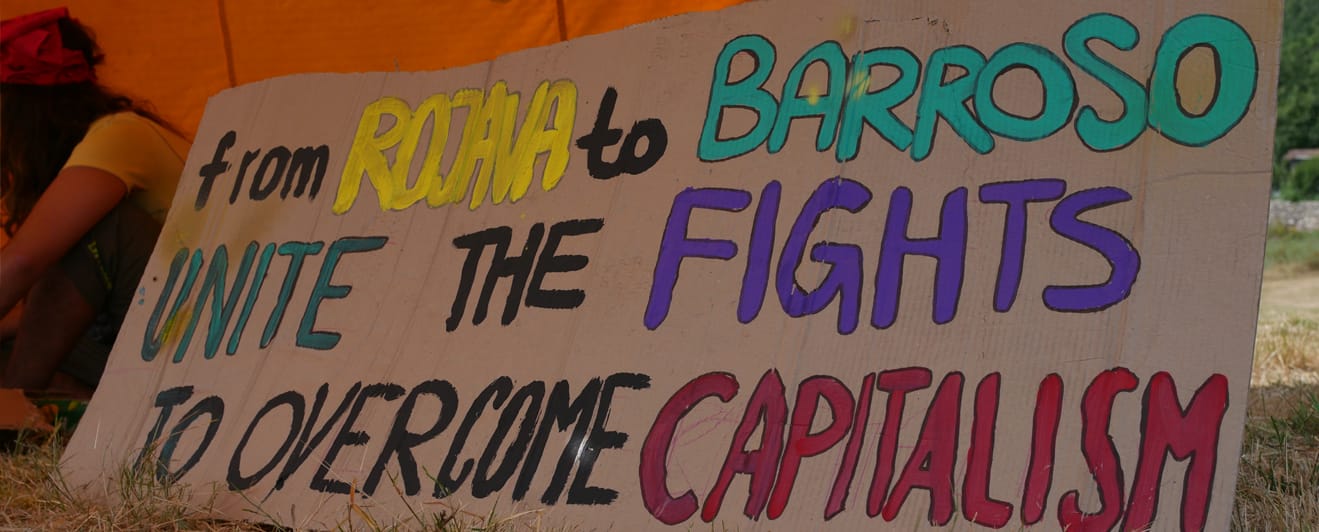 from ROJAVA to BARROSO
UNITE THE FIGHTS
TO OVERCOME CAPITALISM